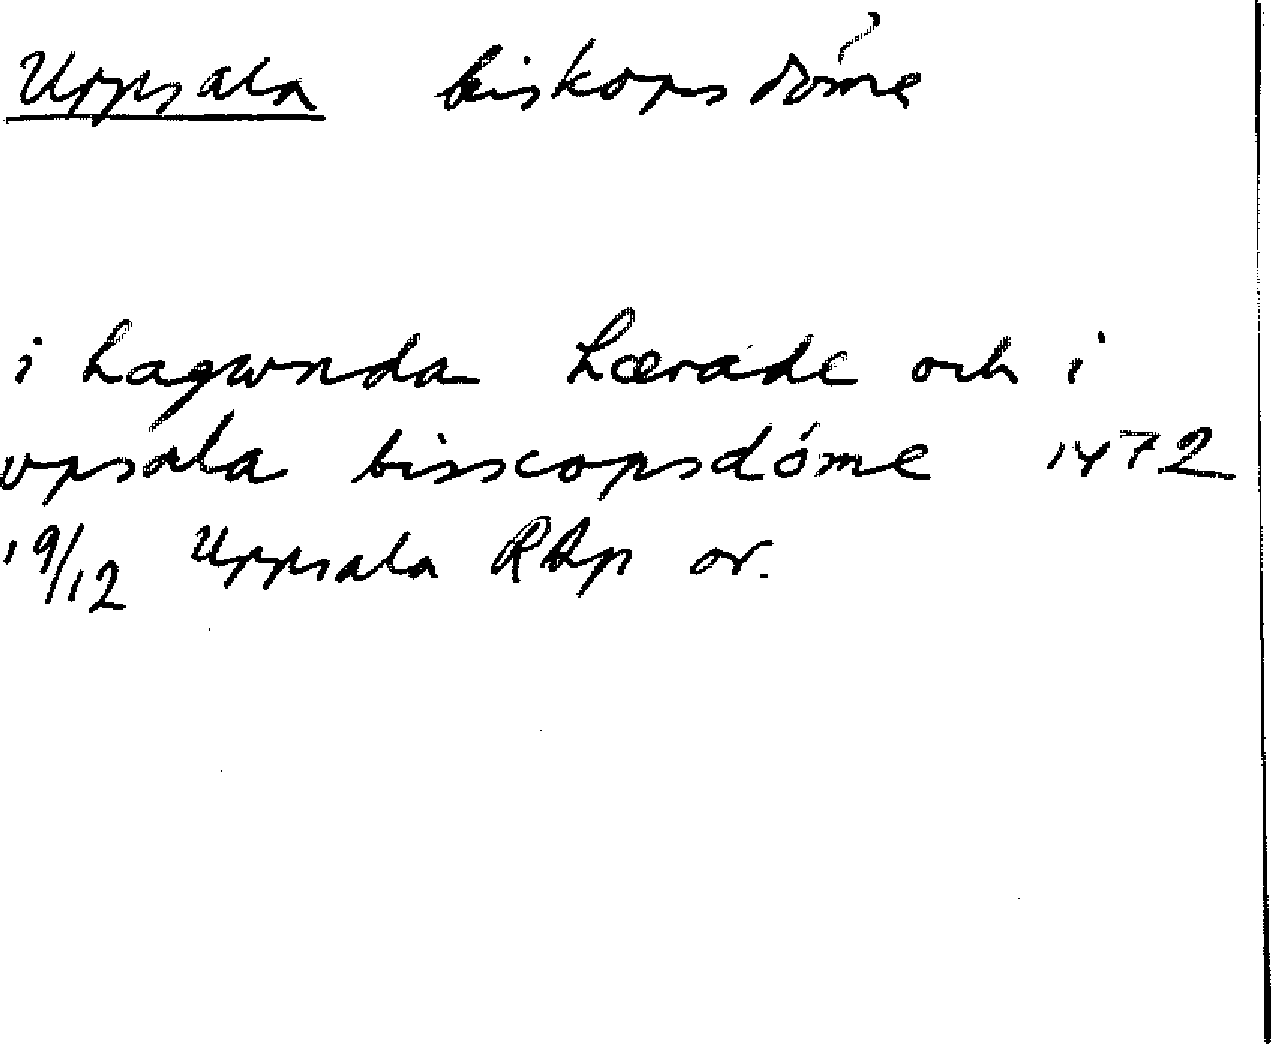 Uppsala biskopsdöme
i hagwnda hærade och i
vpsala bisscopsdóme 1472
19/12 Uppsala RAp or.